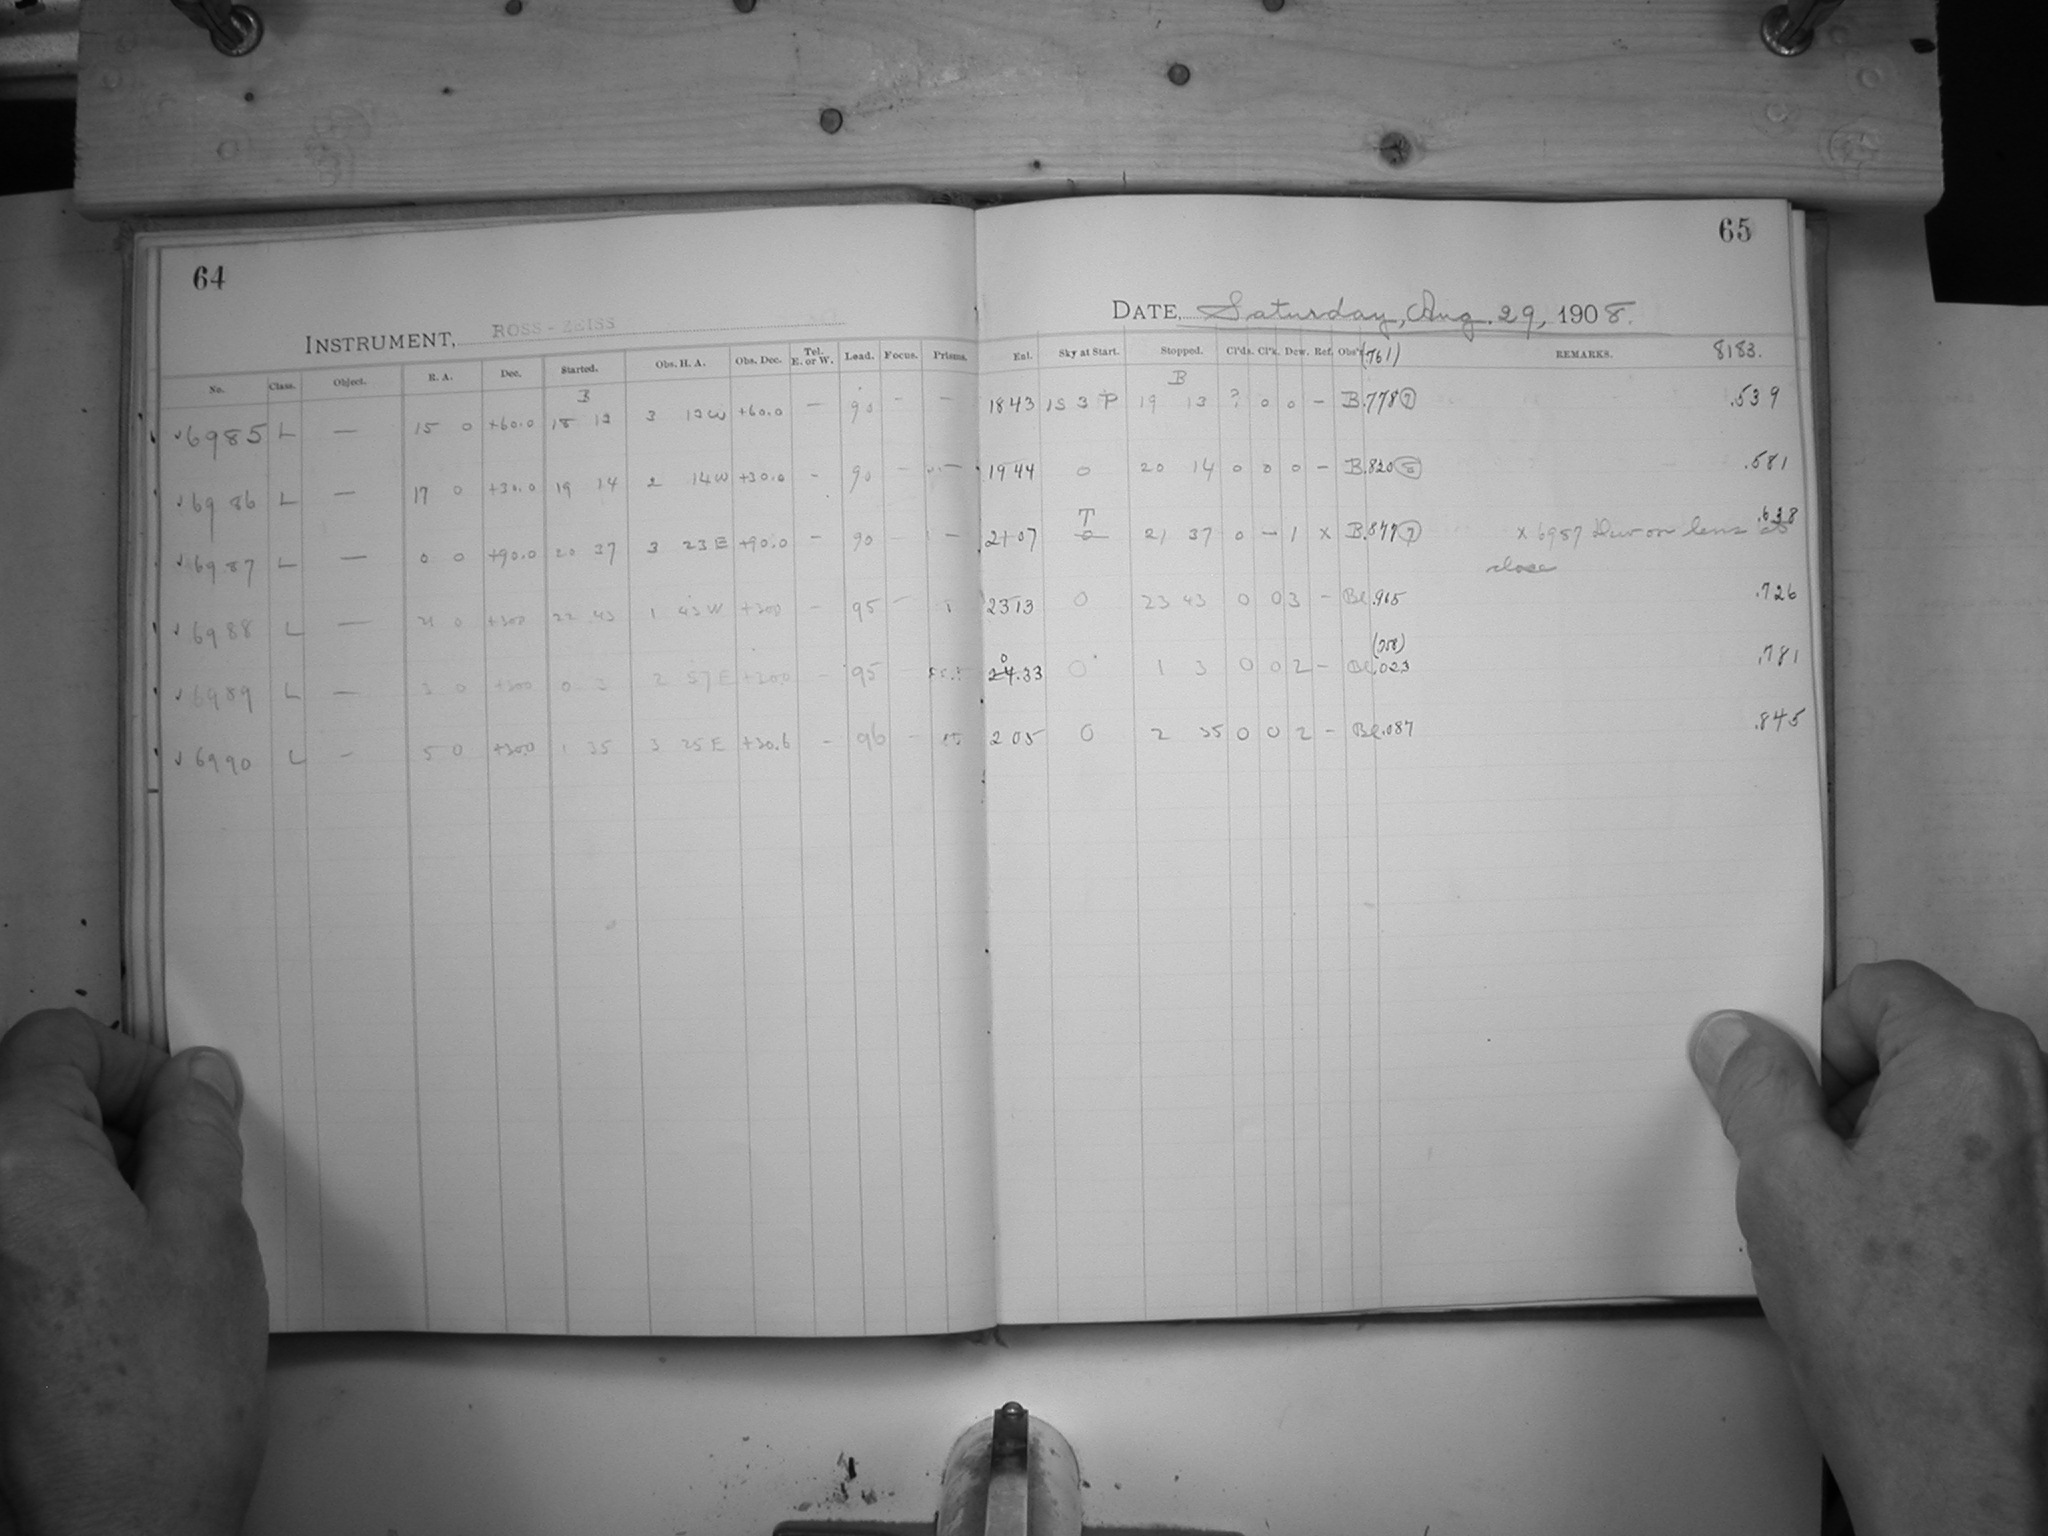 64
65
INSTRUMENT, ROSS-ZEISS
DATE, Saturday, Aug. 29, 1908.
No. Class. Object. R. A. Dec. Started. Obs. H. A. Obs. Dec. Tel. E. or W. Lead. Focus. Prisms. Enl. Sky at Start. Stopped. Cl'ds. Cl'k. Dew. Ref. Obs'r (761) REMARKS. 8183.
B B
✓6985 L — 15 0 +60.0 18 13 3 13W +60.0 — 90 - — 1843 1S 3 P 19 13 ? 0 0 - B .778 7 .539
✓6986 L — 17 0 +30.0 19 14 2 14W +30.0 - 90 - — 1944 0 20 14 0 0 0 - B .820 8 .581
T
✓6987 L — 0 0 +90.0 20 37 3 23E +90.0 - 90 - — 2107 0 21 37 0 - 1 x B .877 7 x 6987 Dew on lens at .638
close
✓6988 L — 21 0 +300 22 43 1 43W +300 - 95 - 2313 0 23 43 0 0 3 - Bl .965 .726
(758)
✓6989 L — 3 0 +300 0 3 2 57E +30.0 - 95 - 0 24.33 0 1 3 0 0 2 - Bl .023 .781
✓6990 L - 5 0 +30.0 1 35 3 25E +30.6 - 96 - 205 0 2 35 0 0 2 - Bl .087 .845